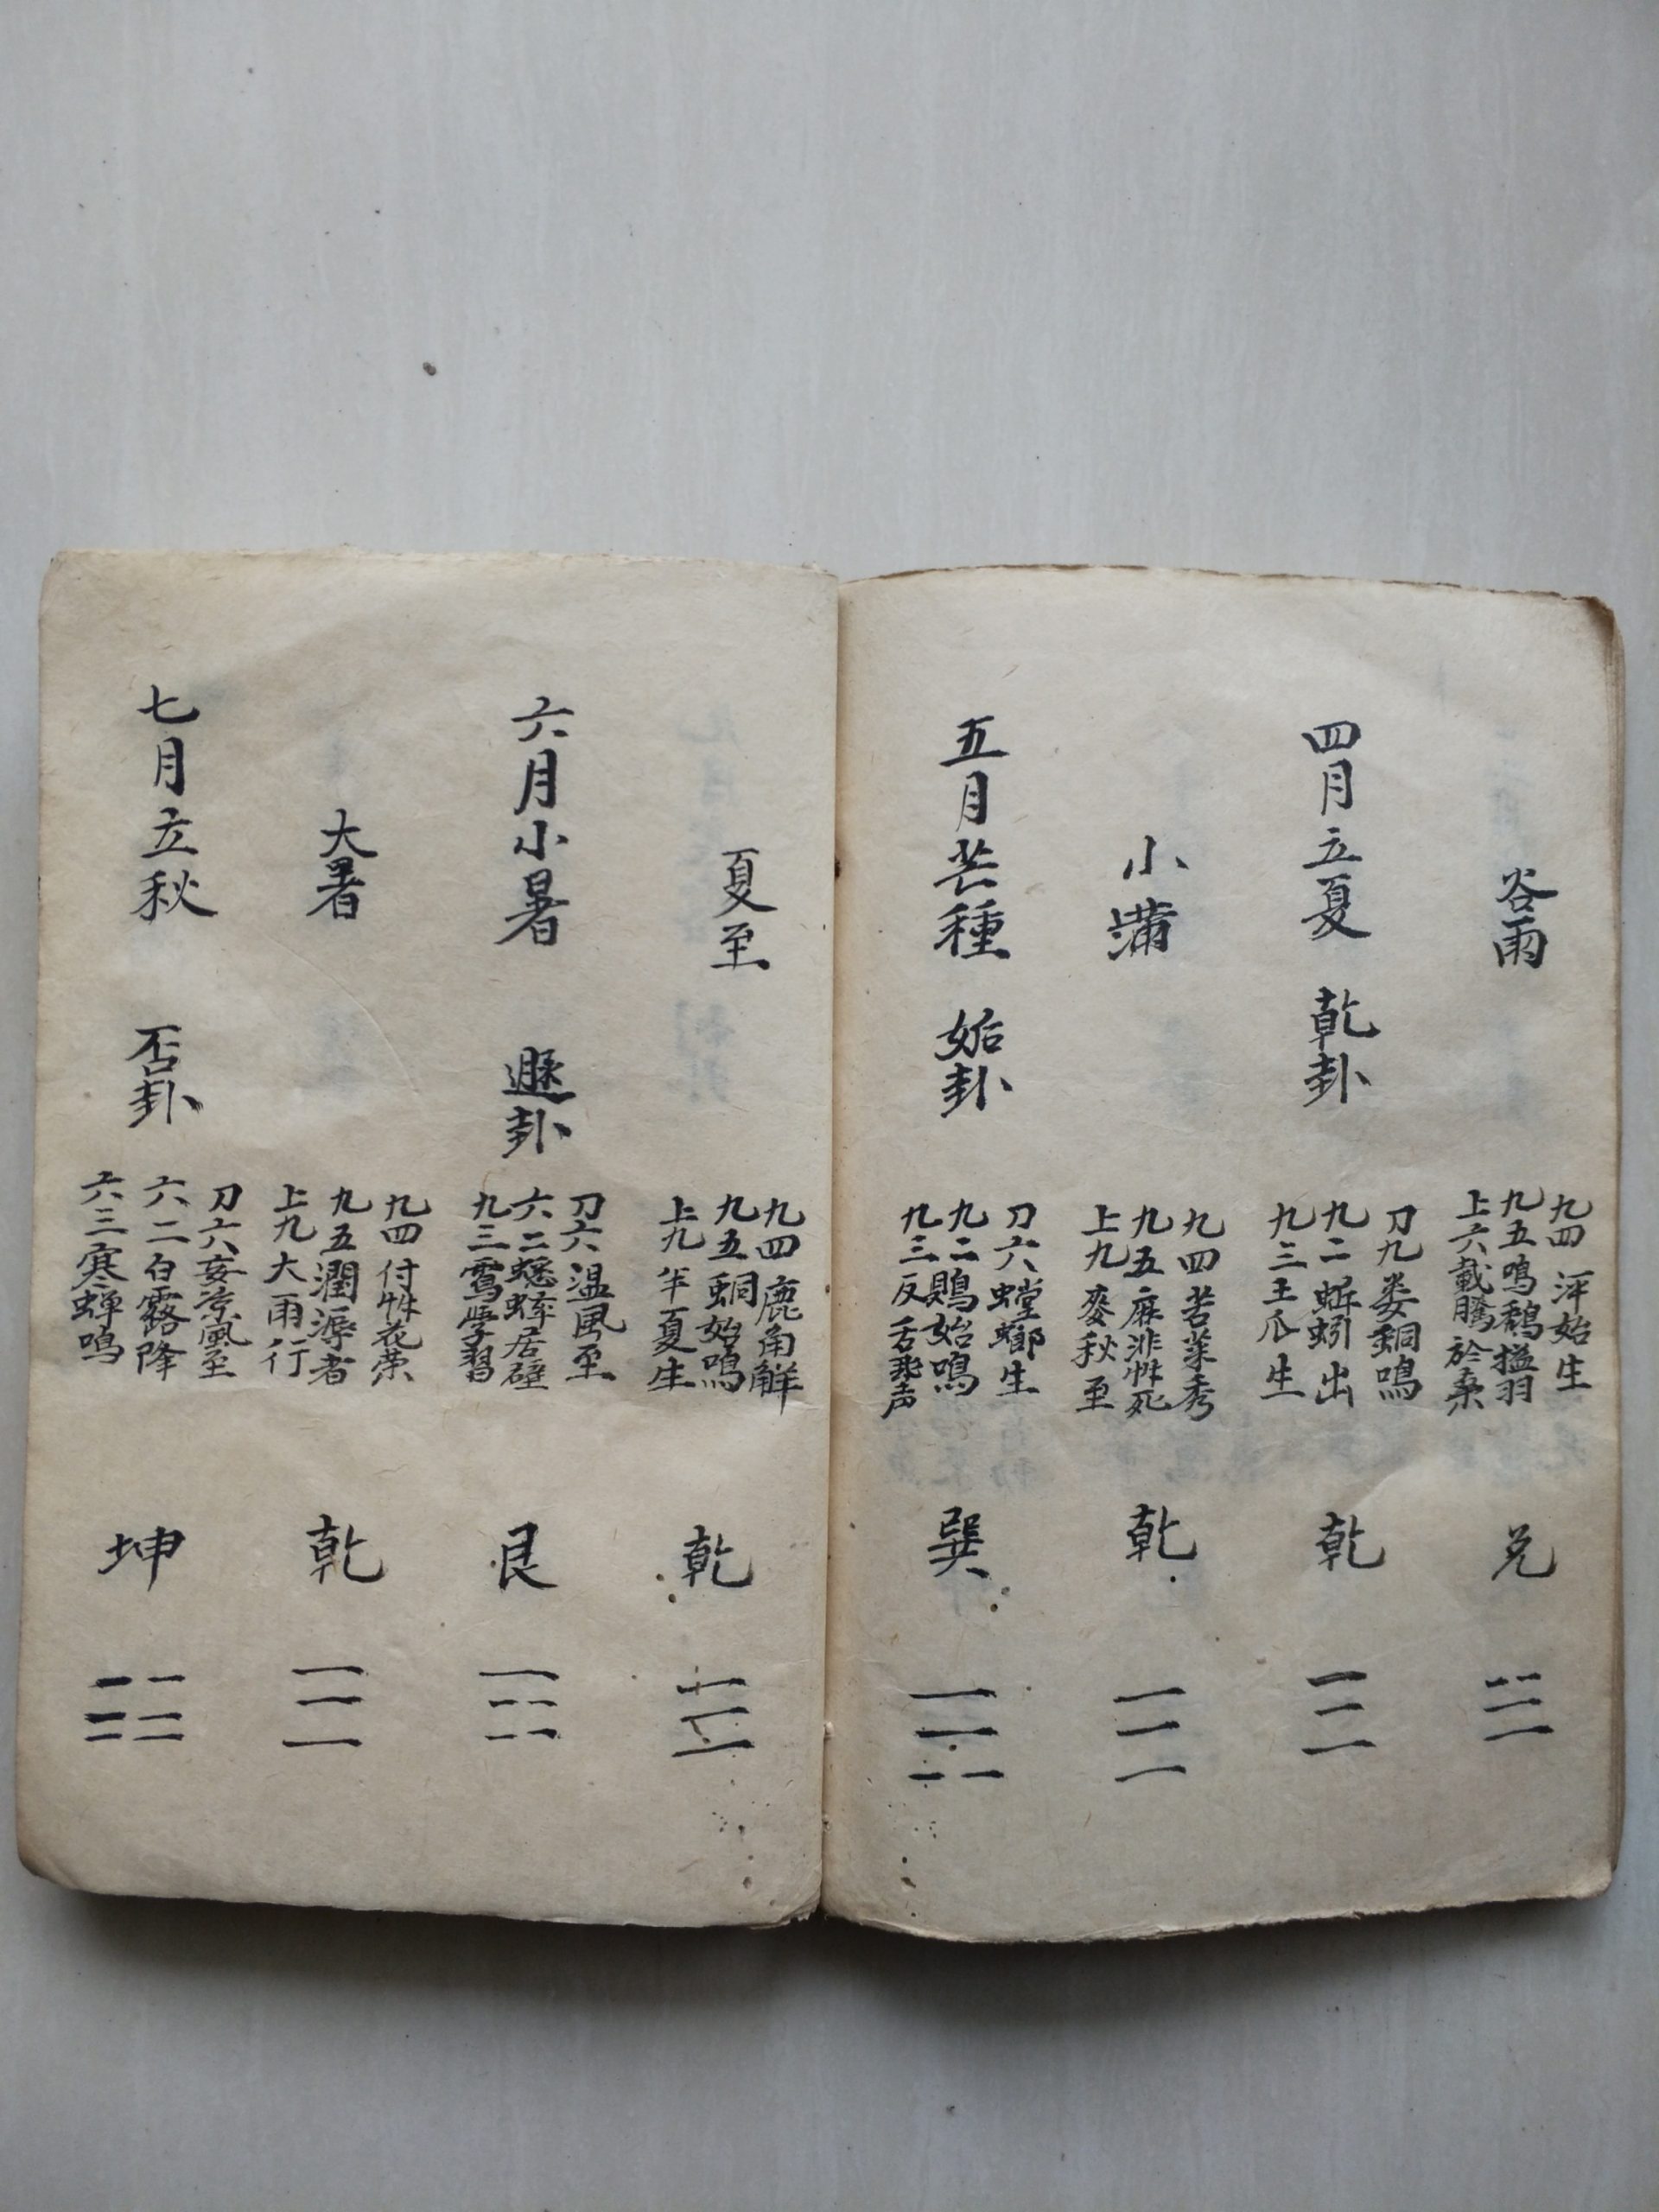 谷雨
九四 泙始生
九五鳴鵓搵羽
上六載鵩於桑
兑
四月立夏 乾卦
刀九婁蜩鳴
九二蚯蚓出
九三王瓜生
乾
小滿
九四苦菜秀
九五麻
上九麥秋至
乾
五月芒種 姤卦
刀六螳螂生
九二鵙始鳴
九三反舌發声
巽
夏至
九四鹿角觧
九五蜩始鳴
上九半夏生
乾
六月小暑 遯卦
刀六温風至
六二蟋蟀居壁
九三鷹學習
艮
大暑
九四付艸花荣
九五潤溽者
上九大雨行
乾
七月立秋 否卦
刀六妄凉風至
六二白露降
六三寒蟬鳴
坤